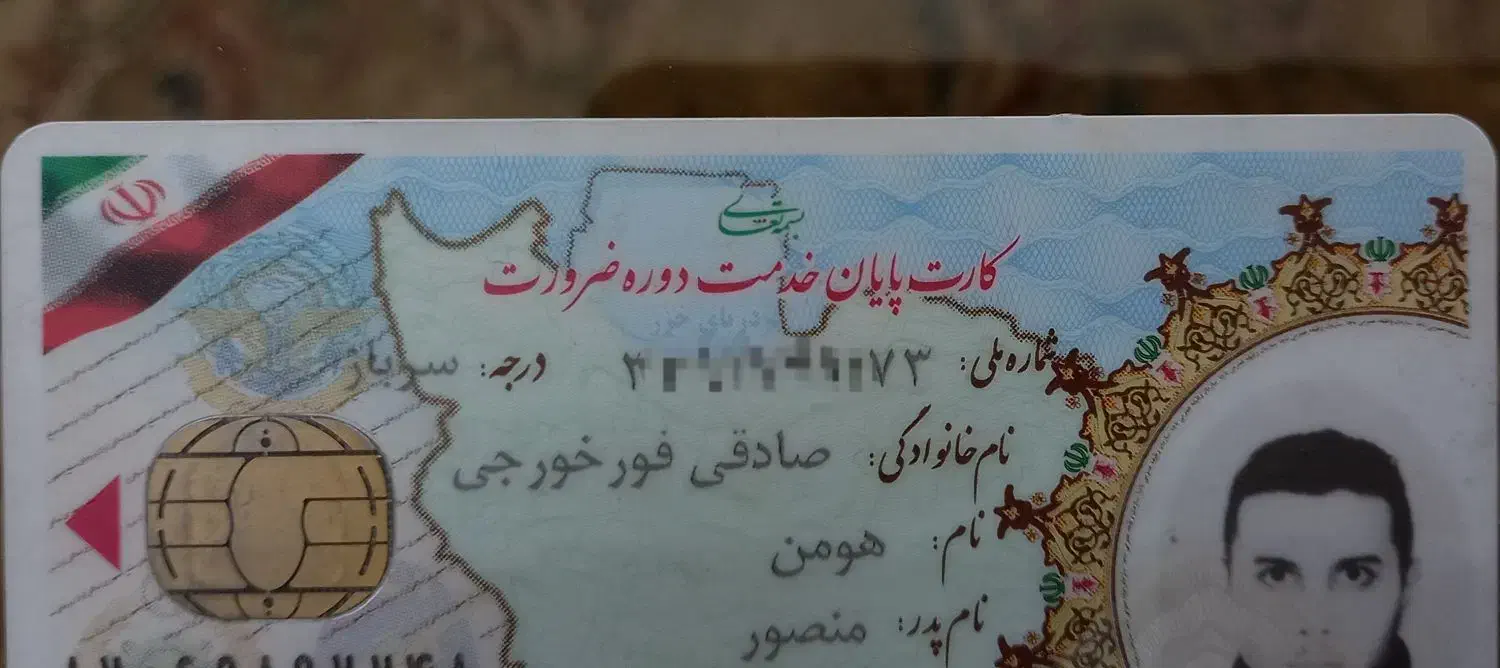 بسمه تعالی
کارت پایان خدمت دوره ضرورت
دریای خزر
شماره ملی: درجه: سرباز
نام خانوادگی: صادقی فورخورجی
نام: هومن
نام پدر: منصور